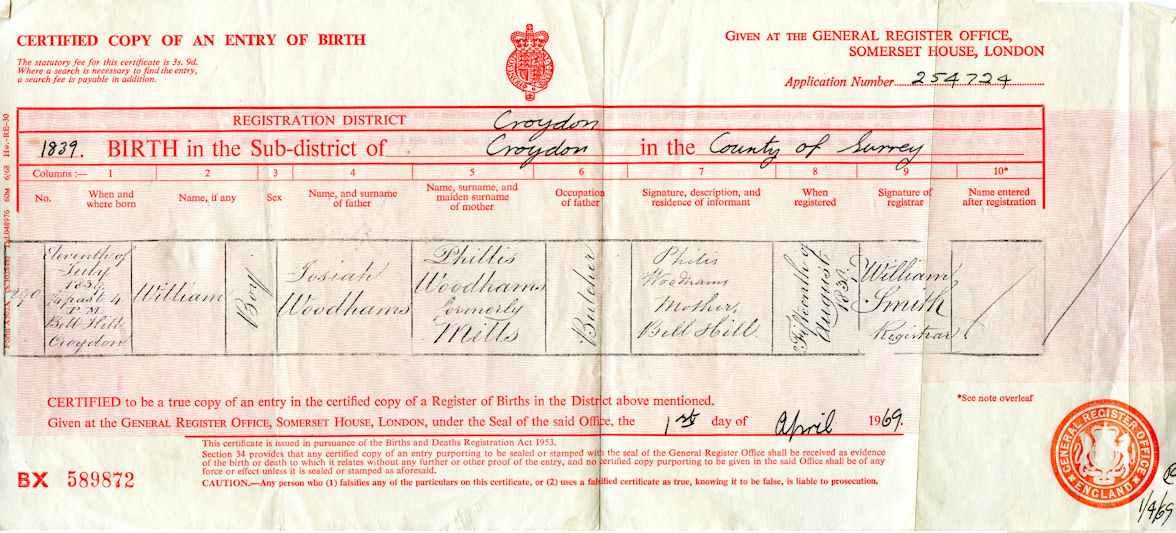 CERTIFIED COPY OF AN ENTRY OF BIRTH
The statutory fee for this certificate is 3s. 9d.
Where a search is necessary to find the entry,
a search fee is payable in addition.
GIVEN AT THE GENERAL REGISTER OFFICE,
SOMERSET HOUSE, LONDON
Application Number 254724
REGISTRATION DISTRICT Croydon
1839. BIRTH in the Sub-district of Croydon in the County of Surrey
Columns :— 1 2 3 4 5 6 7 8 9 10*
No.
When and
where born
Name, if any
Sex
Name, and surname
of father
Name, surname, and
maiden surname
of mother
Occupation
of father
Signature, description, and
residence of informant
When
registered
Signature of
registrar
Name entered
after registration
Eleventh of
July
1839
past 4
P.M.
Bell Hill
Croydon
William
Boy
Josiah
Woodhams
Phillis
Woodhams
formerly
Mills
Butcher
Philis
Woodhams
Mother,
Bell Hill
Fifteenth of
August
1839
William
Smith
Registrar
60M 6/68 Hw.-RE-30
CERTIFIED to be a true copy of an entry in the certified copy of a Register of Births in the District above mentioned.
Given at the GENERAL REGISTER OFFICE, SOMERSET HOUSE, LONDON, under the Seal of the said Office, the 1st day of April 1969.
*See note overleaf
This certificate is issued in pursuance of the Births and Deaths Registration Act 1953.
Section 34 provides that any certified copy of an entry purporting to be sealed or stamped with the seal of the General Register Office shall be received as evidence
of the birth or death to which it relates without any further or other proof of the entry, and no certified copy purporting to be given in the said Office shall be of any
force or effect unless it is sealed or stamped as aforesaid.
CAUTION.—Any person who (1) falsifies any of the particulars on this certificate, or (2) uses a falsified certificate as true, knowing it to be false, is liable to prosecution.
BX 589872
GENERAL REGISTER OFFICE
ENGLAND
1/4/69